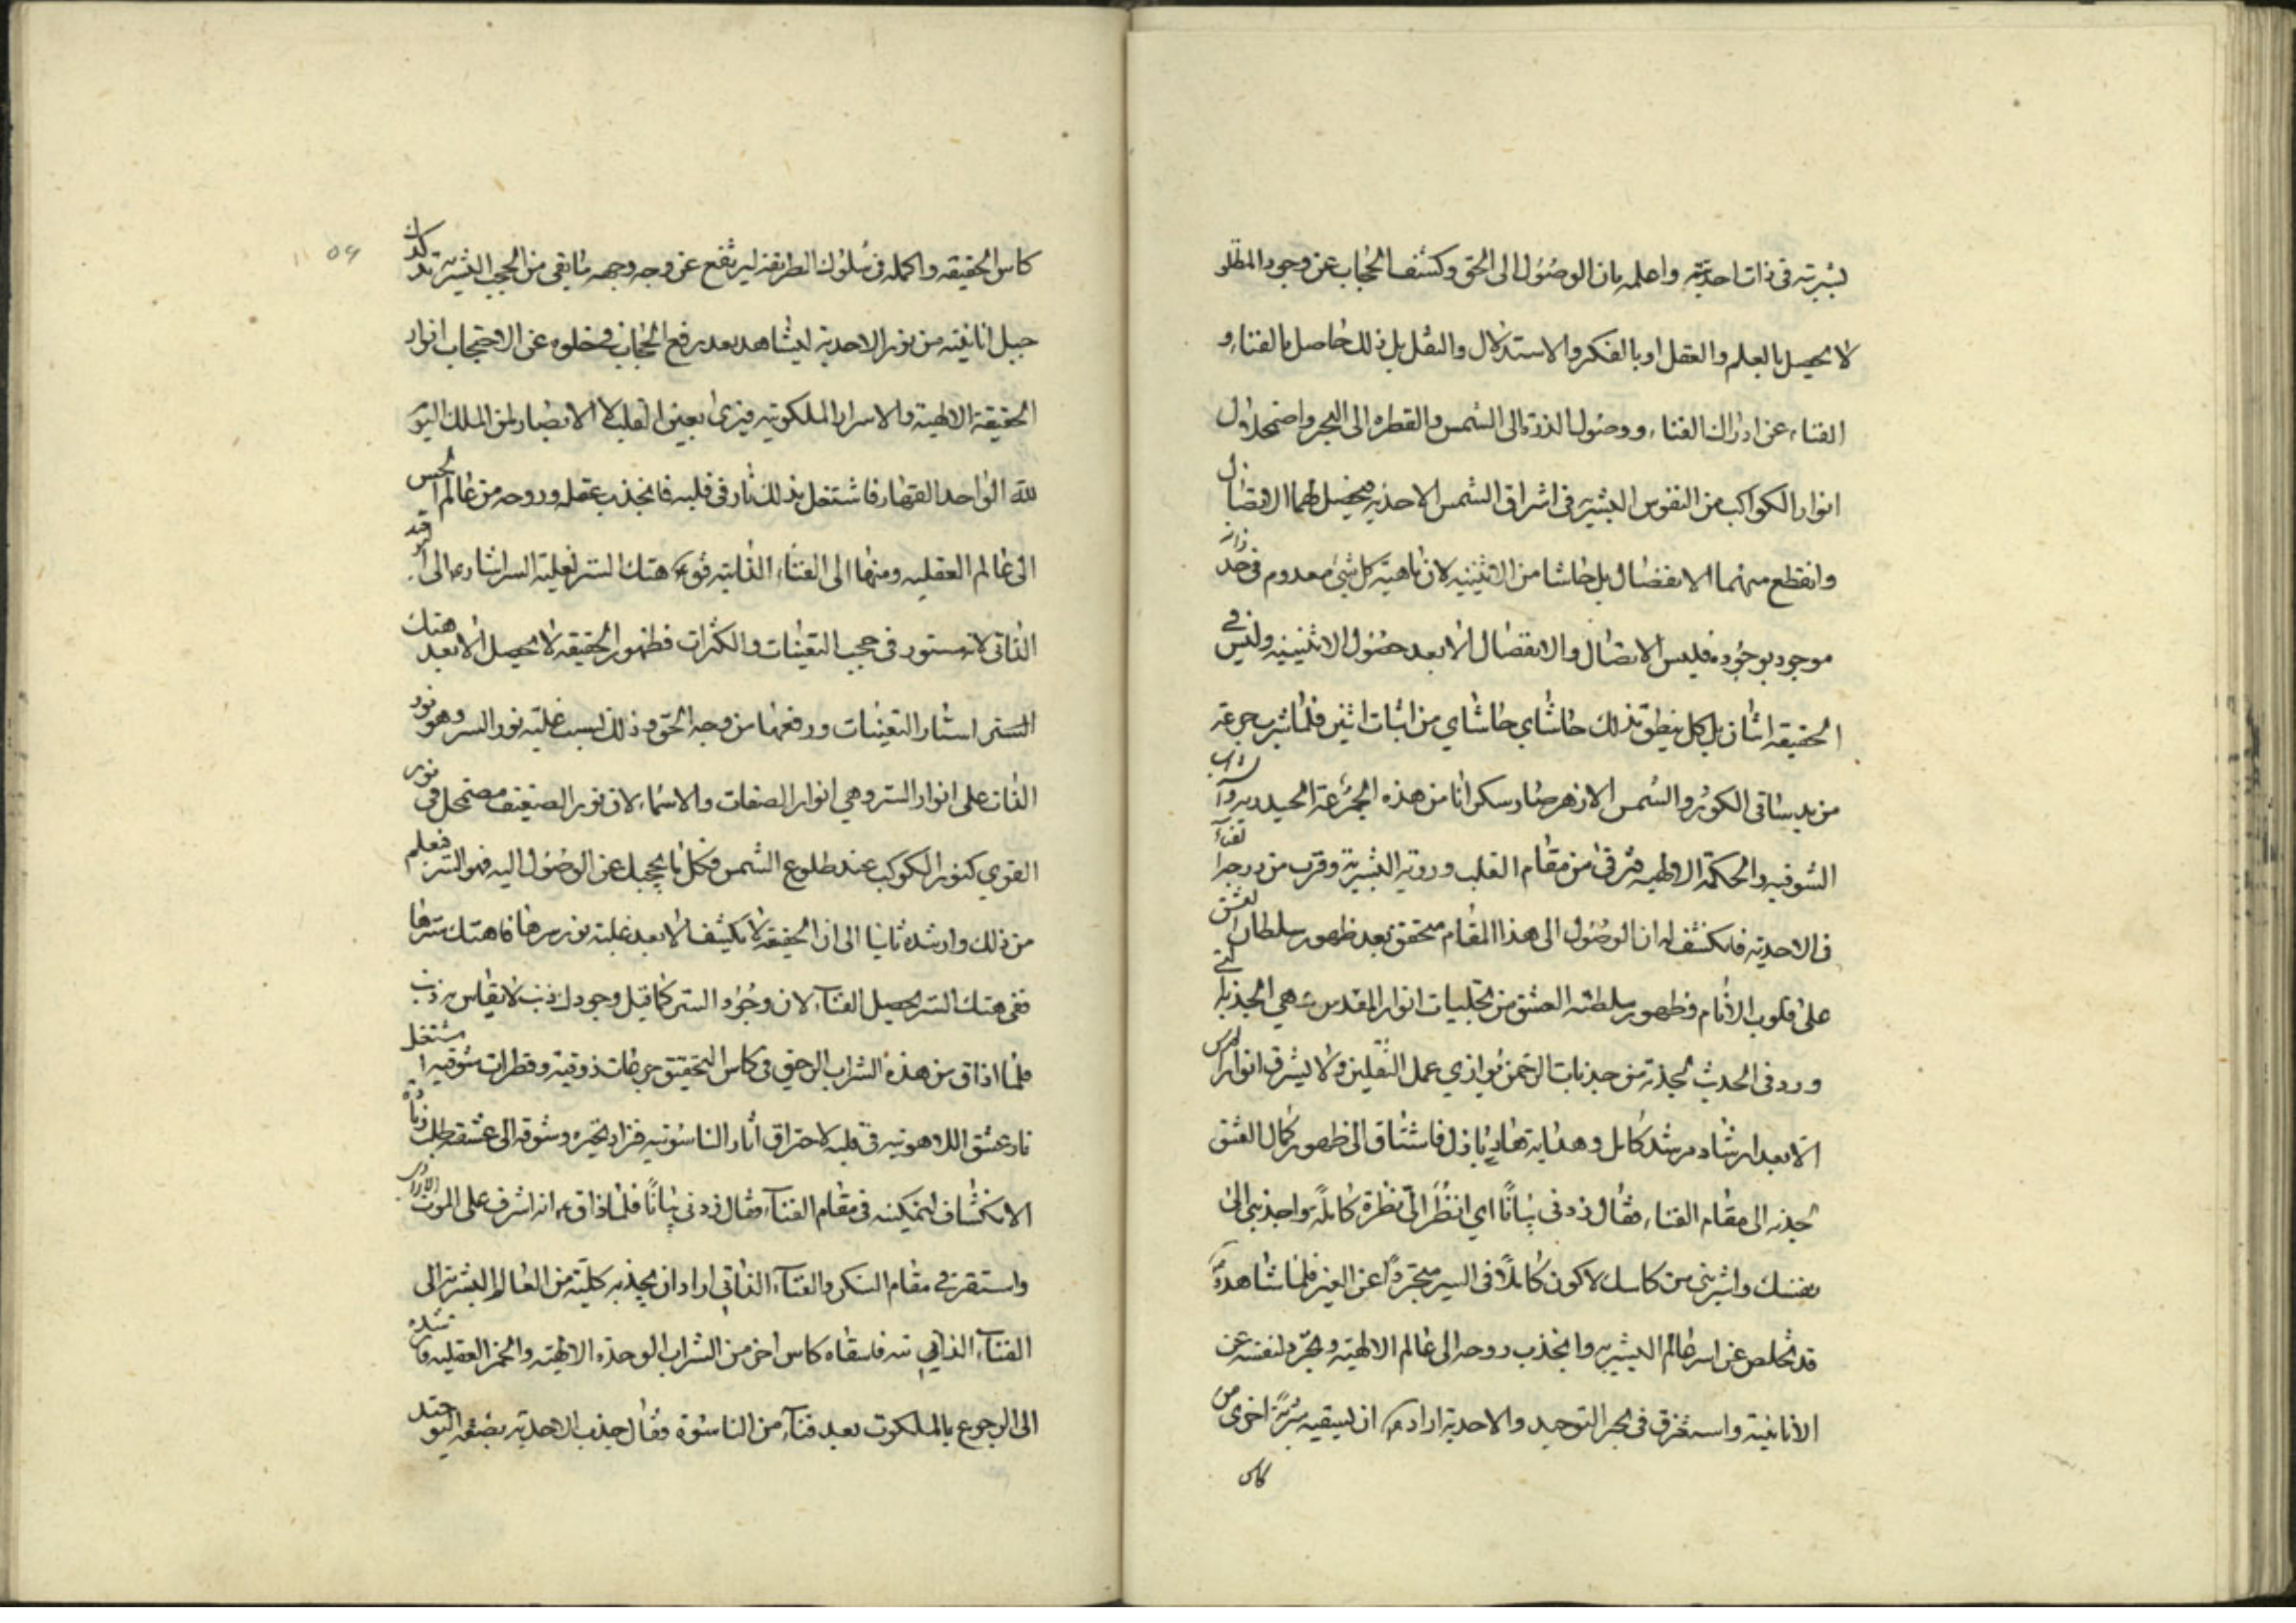 بشريته في ذات احديته واعلمه بان الوصول الى الحق وكشف الحجاب عن وجود المطلق
لا يحصل بالعلم والعقل او بالفكر والاستدلال والنقل بل ذلك حاصل بالفناء و
الفناء عن ادراك الفناء ووصول الذرة الى الشمس والقطره الى البحر واضمحلال
انوار الكواكب من النفوس البشريه في اشراق الشمس الاحديه فيحصل لهما الاتصال
وانقطع منهما الانفصال بل حاشا من الاثنينيه لان ماهية كل شئ معدوم في حد ذاته
موجود بوجوده فليس الاتصال والانفصال الا بعد حصول الاثنينيه وليس في
الحقيقه اثنان بل كل ينطق بذلك حاشاي حاشاي من اثبات اثنين فلما شرب جرعة
من يد ساقي الكوثر والشمس الازهر صار سكرانا من هذه الجرعة الحيدريه
الشوقيه والحكمة الالهيه فترقى من مقام القلب ورؤية البشرية وقرب من درجة الفناء
في الاحديه فانكشف له ان الوصول الى هذا المقام متحقق بعد ظهور سلطان العشق
على قلوب الانام وظهور سلطنة العشق من تجليات انوار القدس هي الجذبة التي
ورد في الحديث الجذبة من جذبات الرحمن توازي عمل الثقلين ولا يشرق انوار القدس
الا بعد ارشاد مرشد كامل وهداية هاد باذل فاشتاق الى ظهور كمال العشق
لجذبه الى مقام الفناء فقال زدني بيانا اي انظر الي نظرة كاملة واجذبني الى
نفسك واشربني من كاسك لاكون كاملا في السير متجردا عن الغير فلما شاهده
قد تخلص عن اسر عالم البشريه وانجذب روحه الى عالم الالهية وتجرد لنفسه عن
الانانية واستغرق في بحر التوحيد والاحدية اراد ان يسقيه شربة اخرى من
كاس
كاس الحقيقه واكمله في سلوك الطريقة ليرتفع عن وجه وجهه ما بقي من الحجب البشرية
جبل انانيته من نور الاحدية ليشاهد بعد رفع الحجاب وخلوه عن الاحتجاب انوار
الحقيقة الالهية والاسرار الملكوتيه فيرى بعين القلب لا الابصار لمن الملك اليوم
لله الواحد القهار فاشتعل بذلك نار في قلبه فانجذب عقله وروحه من عالم الحس
الى عالم العقليه ومنها الى الفناء الذاتيه فقوله هتك الستر لغلبة السر اشارة الى
الذاتي لانه مستور في حجب التعينات والكثرات فظهور الحقيقه لا يحصل الا بعد هتك
الستر استار التعينات ورفعها من وجه الحق وذلك بسبب غلبة نور السر وهو نور
الذات على انوار الستر وهي انوار الصفات والاسماء لان نور الضعيف مضمحل في نور
القوي كنور الكوكب عند طلوع الشمس فكل ما يحجبك عن الوصول اليه فهو الستر فعلم
من ذلك وارشده ثانيا الى ان الحقيقة لا يكشف الا بعد غلبة نور سرها فاهتك سترها
ففي هتك الستر يحصل الفناء لان وجود الستر كما قيل وجودك ذنب لا يقاس به ذنب
فلما اذاق من هذه الشراب الرحيق في كاس التحقيق جرعات ذوقية وقطرات شوقيه اشتعل
نار عشق اللاهوتيه في قلبه لاحتراق آثار الناسوتيه فزاد تحيره وشوقه الى عشقه طلب زيادة
الانكشاف لتمكينه في مقام الفناء فقال زدني بيانا فلما ذاق انه اشرف على الموت
واستقر في مقام السكر والفناء الذاتي اراد ان يجذبه كليته من العالم البشرية الى
الفناء الذاتي فاسقاه كاس اخر من الشراب الوحدة الالهية والخمر العقليه
الى الرجوع بالملكوت بعد فناء من الناسوت فقال جذب الاحدية بصفة التوحيد